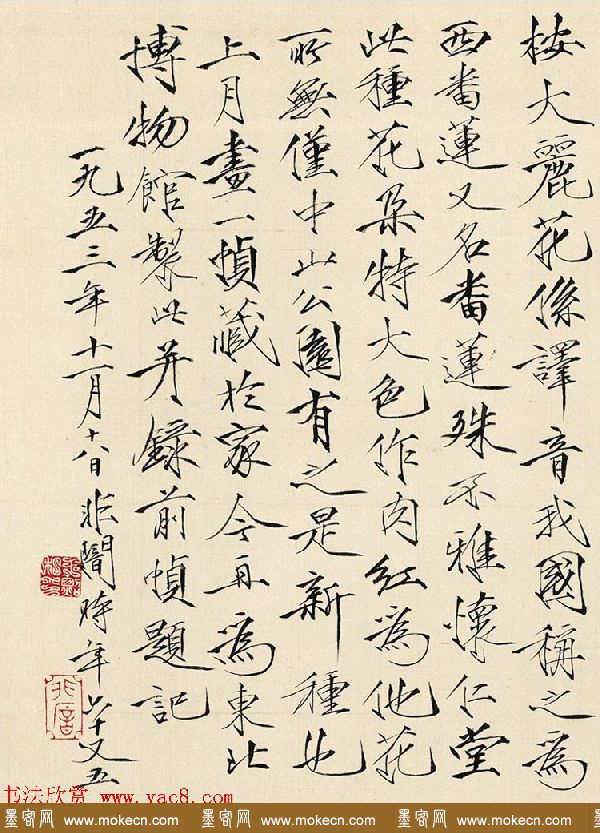 按大麗花係譯音我國稱之為
西番蓮又名番蓮殊不雅懷仁堂
此種花朵特大色作肉紅為他花
所無僅中山公園有之是新種也
上月畫一幀藏於家今再為東北
博物館製此并錄前幀題記
一九五三年十一月十八日非闇時年六十又五
非闇
书法欣赏 www.yac8.com
墨客网 www.mokecn.com 墨客网 www.mokecn.com 墨客网 www.mokecn.com